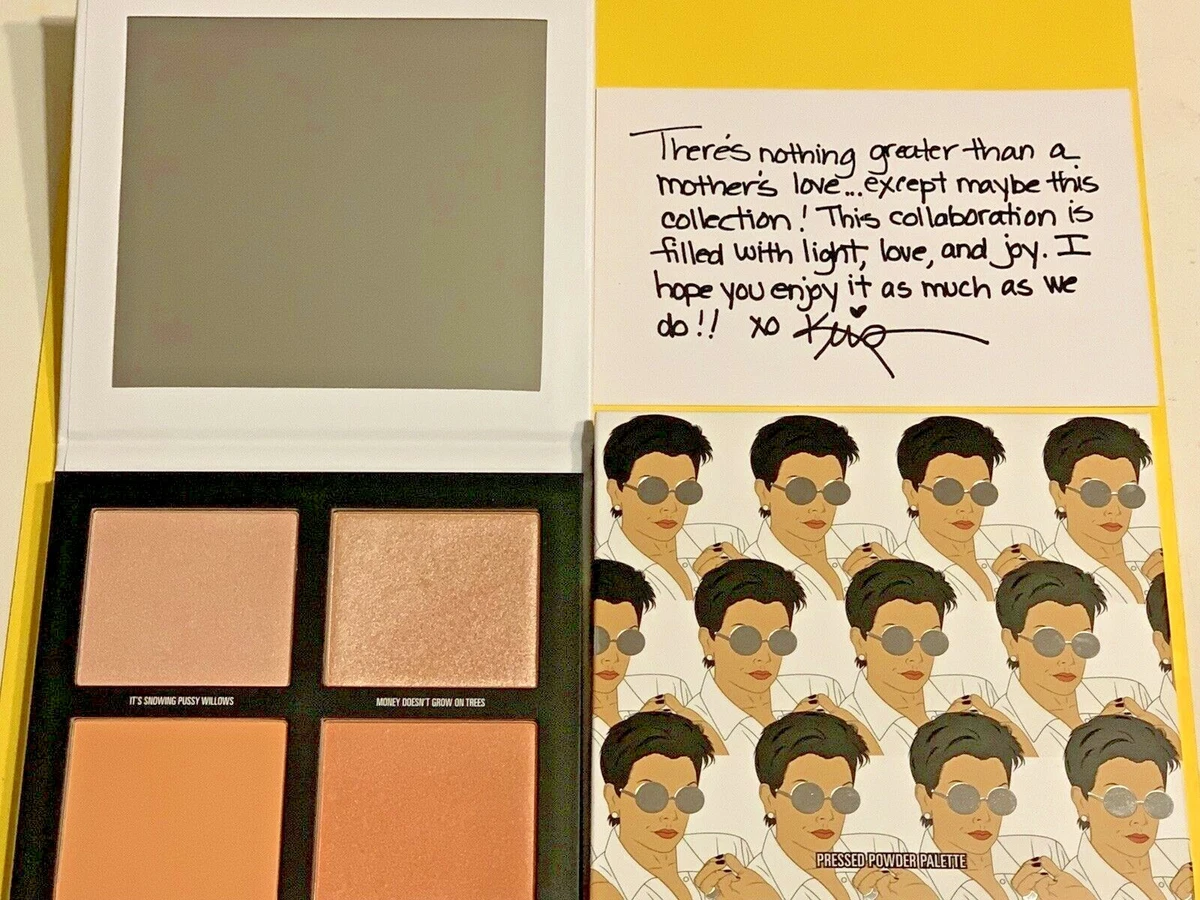 There's nothing greater than a
mother's love...except maybe this
collection! This collaboration is
filled with light, love, and joy. I
hope you enjoy it as much as we
do!! xo Kris
IT'S SNOWING PUSSY WILLOWS
MONEY DOESN'T GROW ON TREES
PRESSED POWDER PALETTE